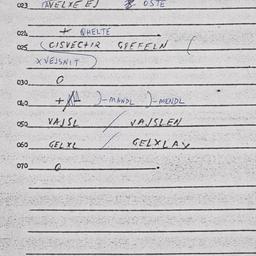 023 TAVELXE EJ OSTE
024 + QHELTE
025 (CISVECHIR GAFFELN (
XVEJSNIT )
030 0
040 + )-MANDL )-MENDL
050 VAJSL / VAJSLEN
060 GELXL / GELXLAX
070 0